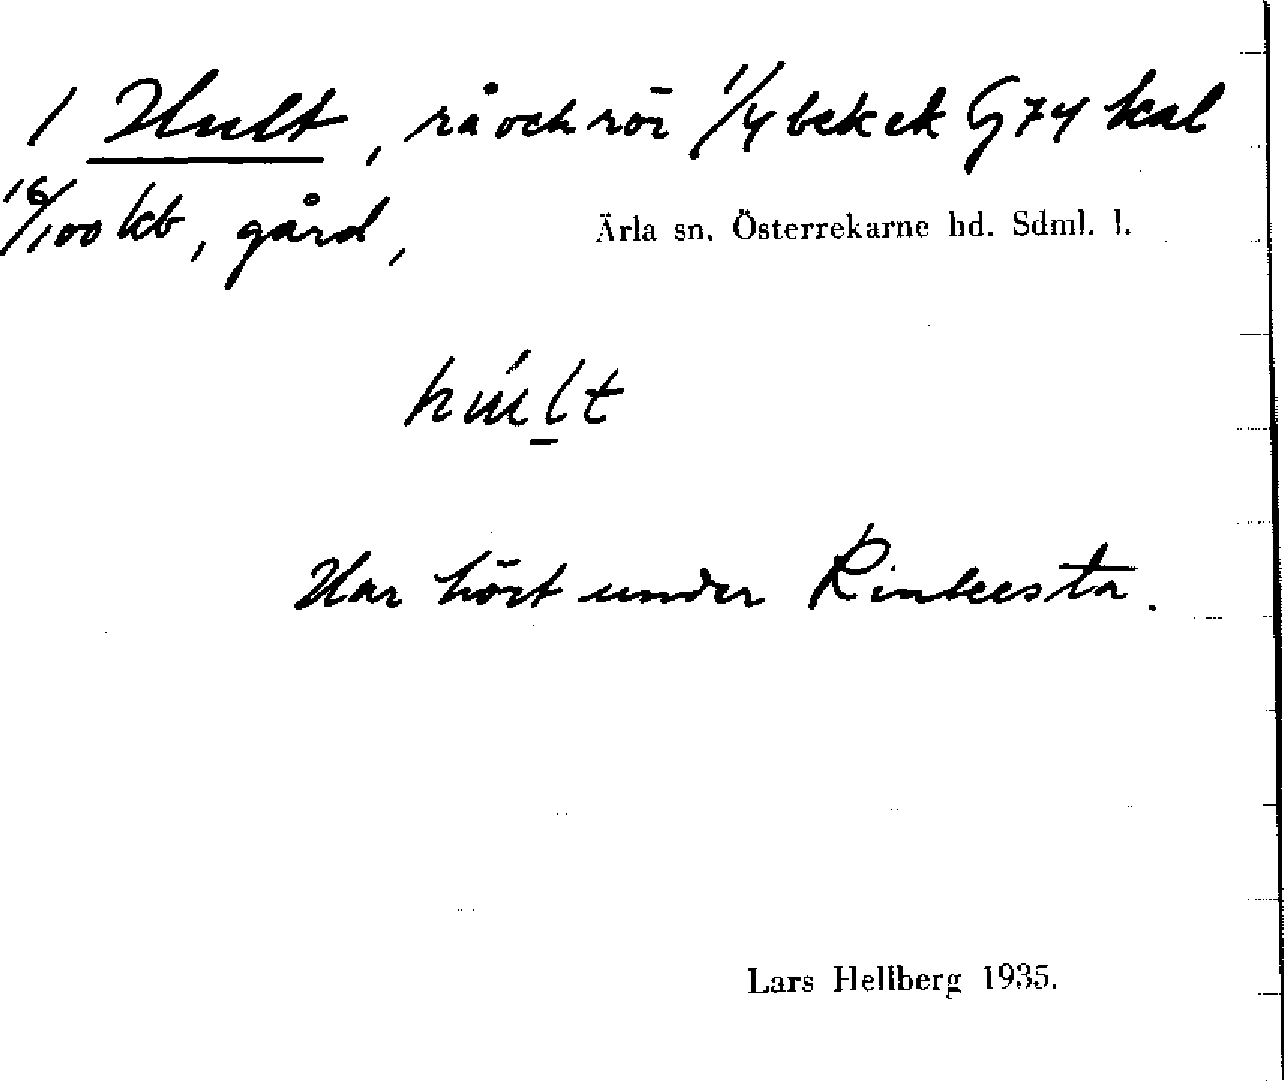 1 Hult, rå och rör 1/4 bek ek G 74 kal
16/100 kb, gård,
Ärla sn. Österrekarne hd. Sdml. l.
húlt
Har hört under Rinkesta.
Lars Hellberg 1935.